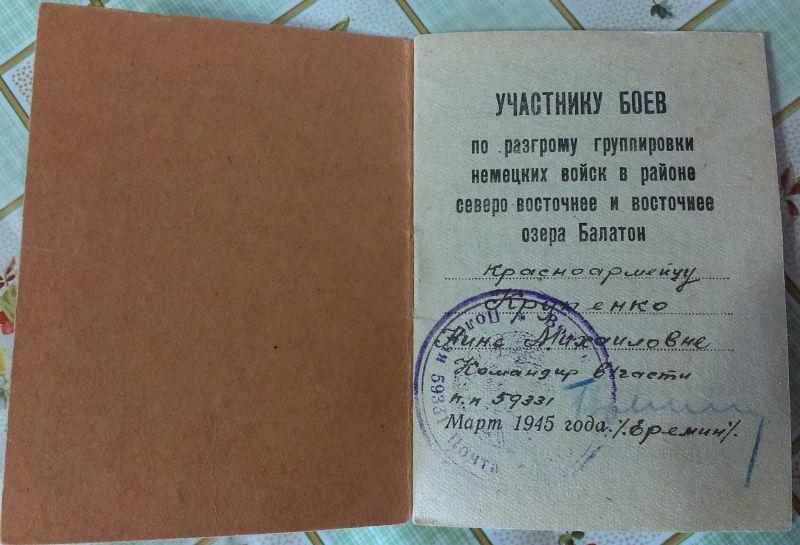 УЧАСТНИКУ БОЕВ
по разгрому группировки
немецких войск в районе
северо-восточнее и восточнее
озера Балатон
Красноармейцу
Крупенко
Нине Михаиловне
Командир в/части
п.п 59331
Март 1945 года. /Еремин/.
Полевая Почта 59331